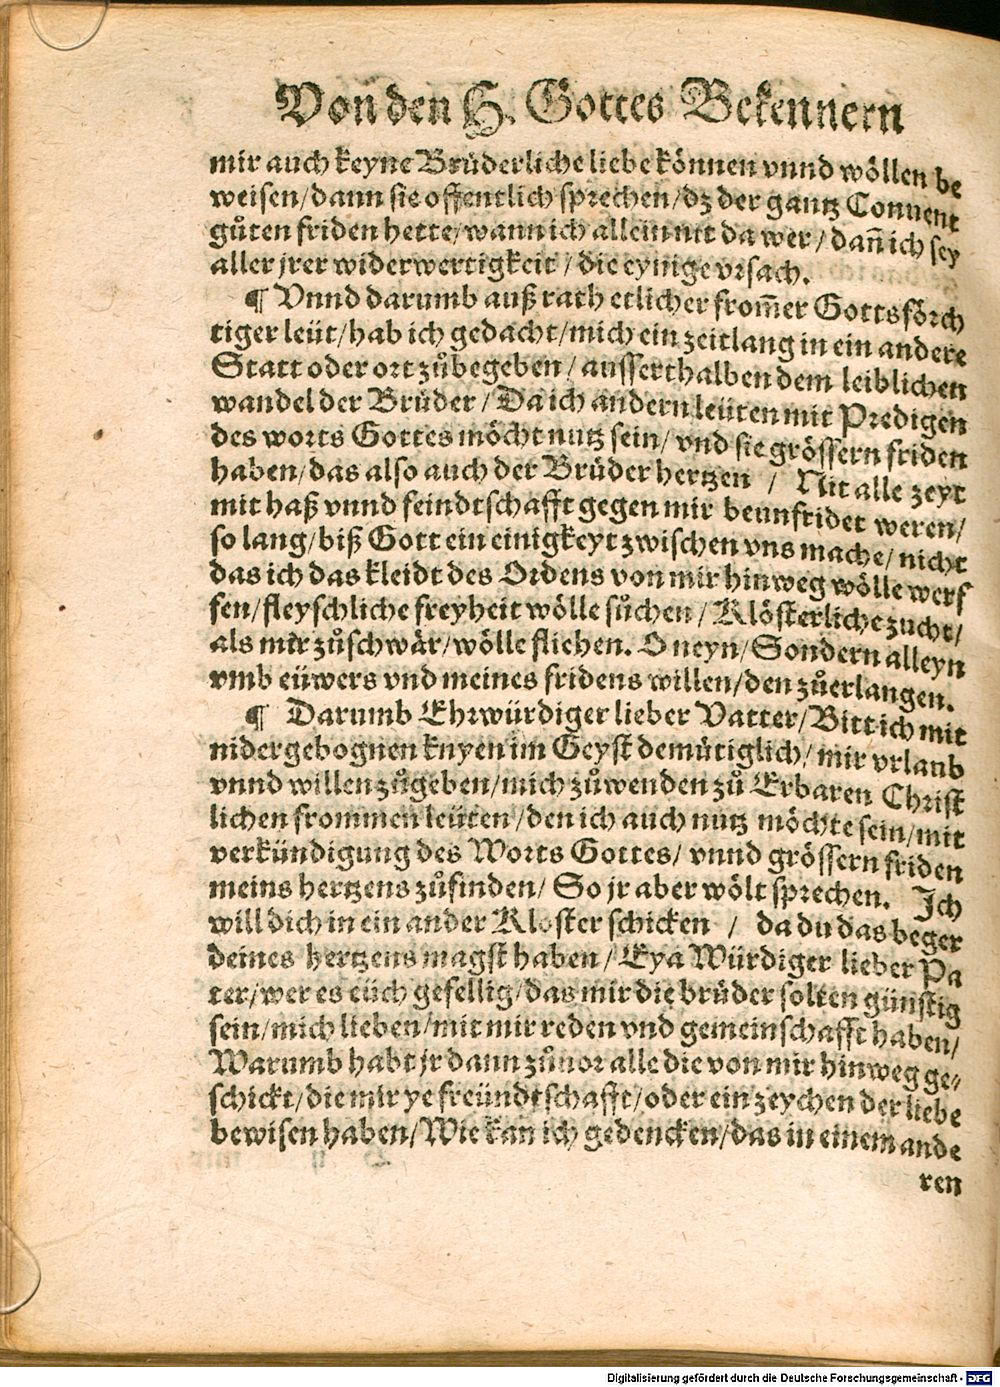 Von den H. Gottes Bekennern
mir auch keyne Brüderliche liebe können vnnd wöllen be
weisen/dann sie offentlich sprechen/dz der gantz Conuent
gůten friden hette/wann ich allein nit da wer/dañ ich sey
aller jrer widerwertigkeit/die eynige vrsach.
¶ Vnnd darumb auß rath etlicher from̃er Gottsförch
tiger leüt/hab ich gedacht/mich ein zeitlang in ein andere
Statt oder ort zůbegeben/ausserthalben dem leiblichen
wandel der Brüder/Da ich andern leüten mit Predigen
des worts Gottes möcht nutz sein/vnd sie grössern friden
haben/das also auch der Brüder hertzen / Nit alle zeyt
mit haß vnnd feindtschafft gegen mir beunfridet weren/
so lang/biß Gott ein einigkeyt zwischen vns mache/nicht
das ich das kleidt des Ordens von mir hinweg wölle werf
fen/fleyschliche freyheit wölle sůchen/Klösterliche zucht/
als mir zůschwär/wölle fliehen. O neyn/Sondern alleyn
vmb eüwers vnd meines fridens willen/den zůerlangen.
¶ Darumb Ehrwürdiger lieber Vatter/Bitt ich mit
nidergebognen knyen im Geyst demütiglich/mir vrlaub
vnnd willen zůgeben/mich zůwenden zů Erbaren Christ
lichen frommen leüten/den ich auch nutz möchte sein/mit
verkündigung des Worts Gottes/vnnd grössern friden
meins hertzens zůfinden/So jr aber wölt sprechen. Ich
will dich in ein ander Kloster schicken / da du das beger
deines hertzens magst haben/Eya Würdiger lieber Pa
ter/wer es eüch gefellig/das mir die brüder solten günstig
sein/mich lieben/mit mir reden vnd gemeinschafft haben/
Warumb habt jr dann zůuor alle die von mir hinweg ge-
schickt/die mir ye freündtschafft/oder ein zeychen der liebe
bewisen haben/Wie kan ich gedencken/das in einem ande
ren
Digitalisierung gefördert durch die Deutsche Forschungsgemeinschaft - DFG